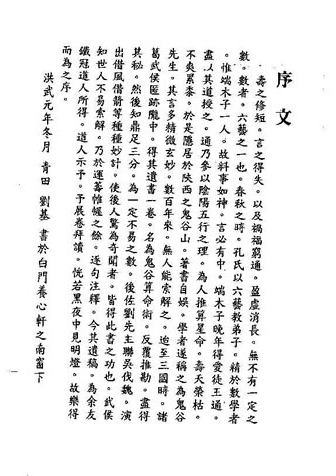 序文
壽之修短。言之得失。以及禍福窮通。盈虛消長。無不有一定之
數。數者。六藝之一也。春秋之時。孔氏以六藝教弟子。精於數學者
。惟端木子一人。故料事如神。言必有中。端木子晚年得愛徒王通。
盡以其道授之。通乃參以陰陽五行之理。為人推算星命。壽夭榮枯。
不爽累黍。於是隱居於陝西之鬼谷山。著書自娛。學者遂稱之為鬼谷
先生。其言多精微玄妙。數百年來。無人能索解之。迨至三國時。諸
葛武侯匿跡隴中。得其遺書一卷。名為鬼谷算命術。反覆推勘。盡得
其秘。然後知鼎足三分。為一定不易之數。後佐劉先主聯吳伐魏。演
出借風借箭等種種妙計。使後人驚為奇聞者。皆得此書之功也。武侯
知世人不易索解。乃於運籌帷幄之餘。逐句注釋。今其遺稿。為余友
鐵冠道人所得。道人示予。予展卷拜讀。恍若黑夜中見明燈。故樂得
而為之序。
洪武元年冬月 青田 劉基 書於白門養心軒之南窗下
一